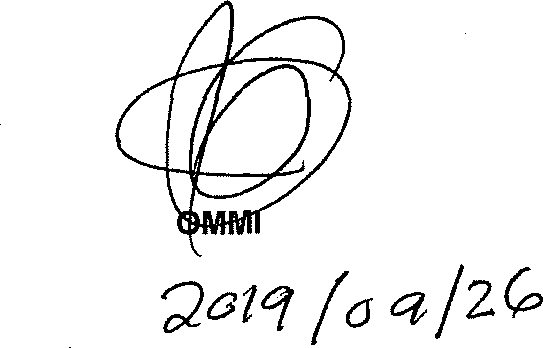 OMMI
2019/09/26